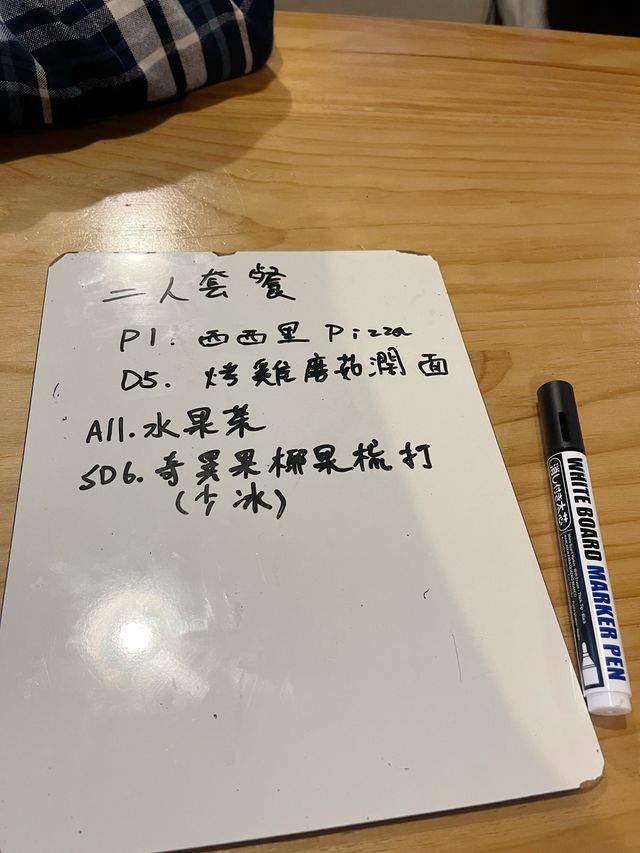 二人套餐
P1. 西西里 Pizza
D5. 烤雞磨菇濶面
A11.水果茶
SD6.奇異果椰果梳打
(少冰)
WHITE BOARD MARKER PEN